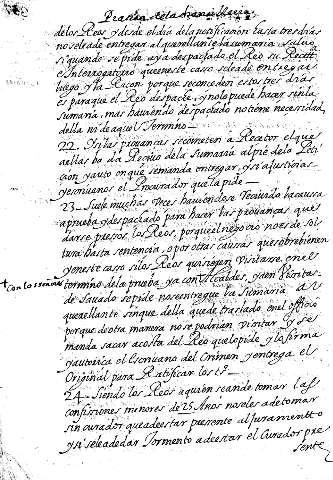 de los Reos, y desde el dia de la notificazión hasta tres dias
no se le a de entregar al querellante la sumaria, salvo
si quando se pide aya despachado el Reo su
e Interrogatorio que en este caso se le a de entregar
luego, y la Raçon porque se conceden estos tres dias
es para que el Reo despache, y no le puede hacer sin la
sumaria, mas haviendo despachado no tiene necesidad
della ni de aquel termino
22. Si las provanças se cometen a Recetor el que
a ellas ba da Reçivo de la Sumaria al pie de la Peti
ción y auto en que se manda entregar, y si a Justicias
y escrivanos el Procurador que la pide
23. Suele muchas veces haviendose Recivido la caussa
a prueba y despachado para hacer las provanças que
darse presos los Reos, porque el negocio no es de sol
tura hasta sentencia, o por otras causas que sobrebienen
y en este caso si los Reos quisieren Visitarse en el
termino de la prueba, ya con Alcaldes, ya en Visitas
de Savado se pide no se entregue la Sumaria al
querellante sin que della quede traslado en el officio
porque de otra manera no se podrian Visitar y se
manda sacar a costa del Reo que lo pide y la firma
y autoriça el Escrivano del Crimen, y entrega el
Original para Ratificar los ts
24. Siendo los Reos a quien se an de tomar las
confissiones minores de 25 Años no se les a de tomar
sin curador que a de estar presente al Juramento
y si se le a de dar Tormento a de estar el Curador pre
sente